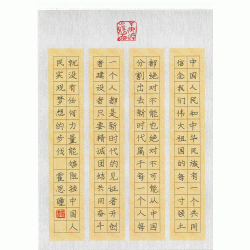 中国人民和中华民族有一个共同
信念我们伟大祖国的每一寸领土
都绝对不能也绝对不可能从中国
分割出去新时代属于每一个人每
一个人都是新时代的见证者开创
者建设者只要精诚团结共同奋斗
就没有任何力量能够阻挡中国人
民实现梦想的步伐